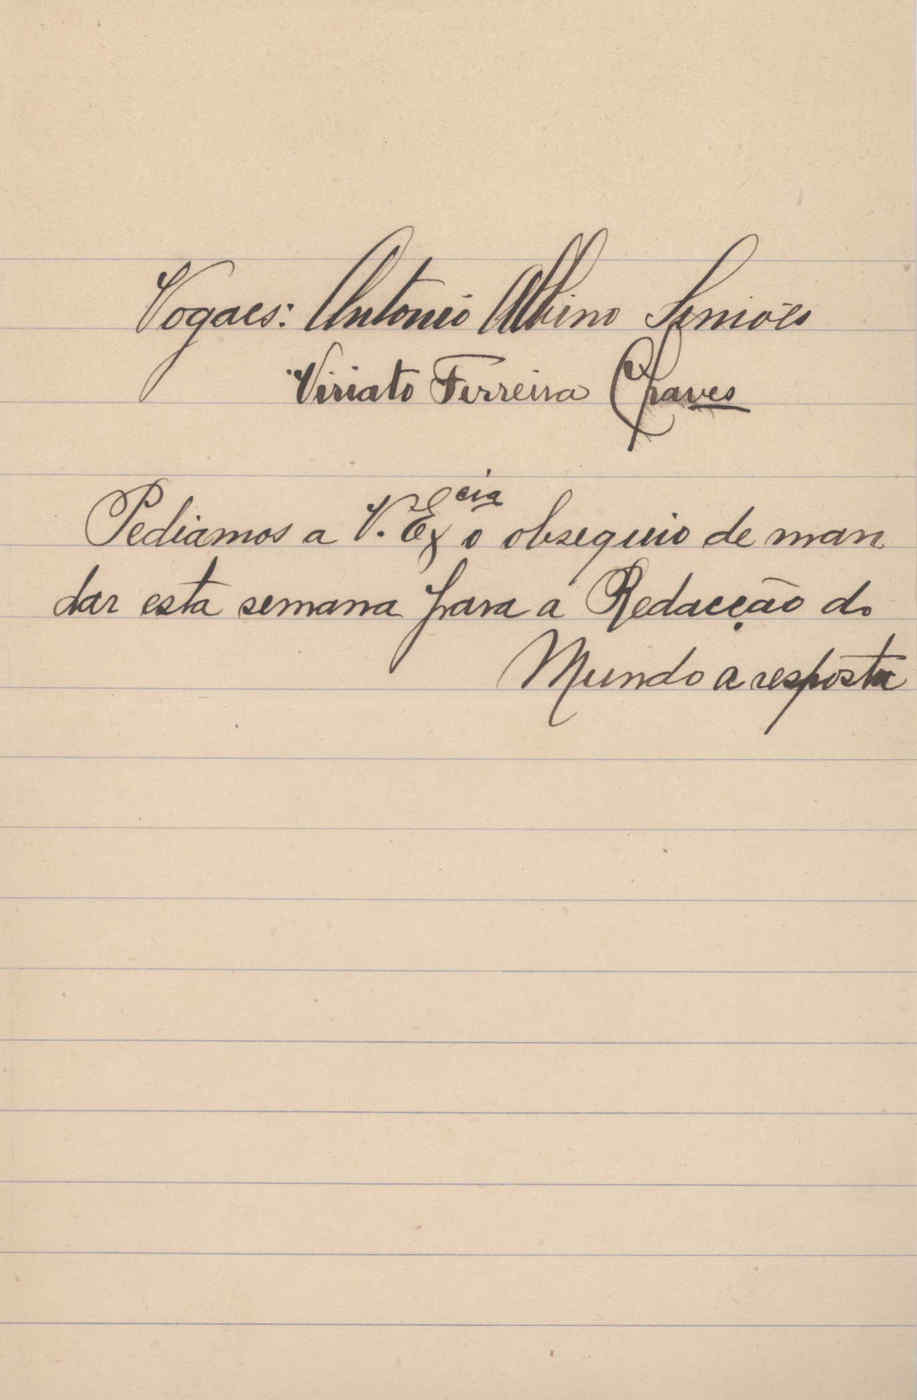 Vogaes: Antonio Albino Simões
Viriato Ferreira Chaves
Pediamos a V. Excia o obsequio de man
dar esta semana para a Redacção do
Mundo a resposta